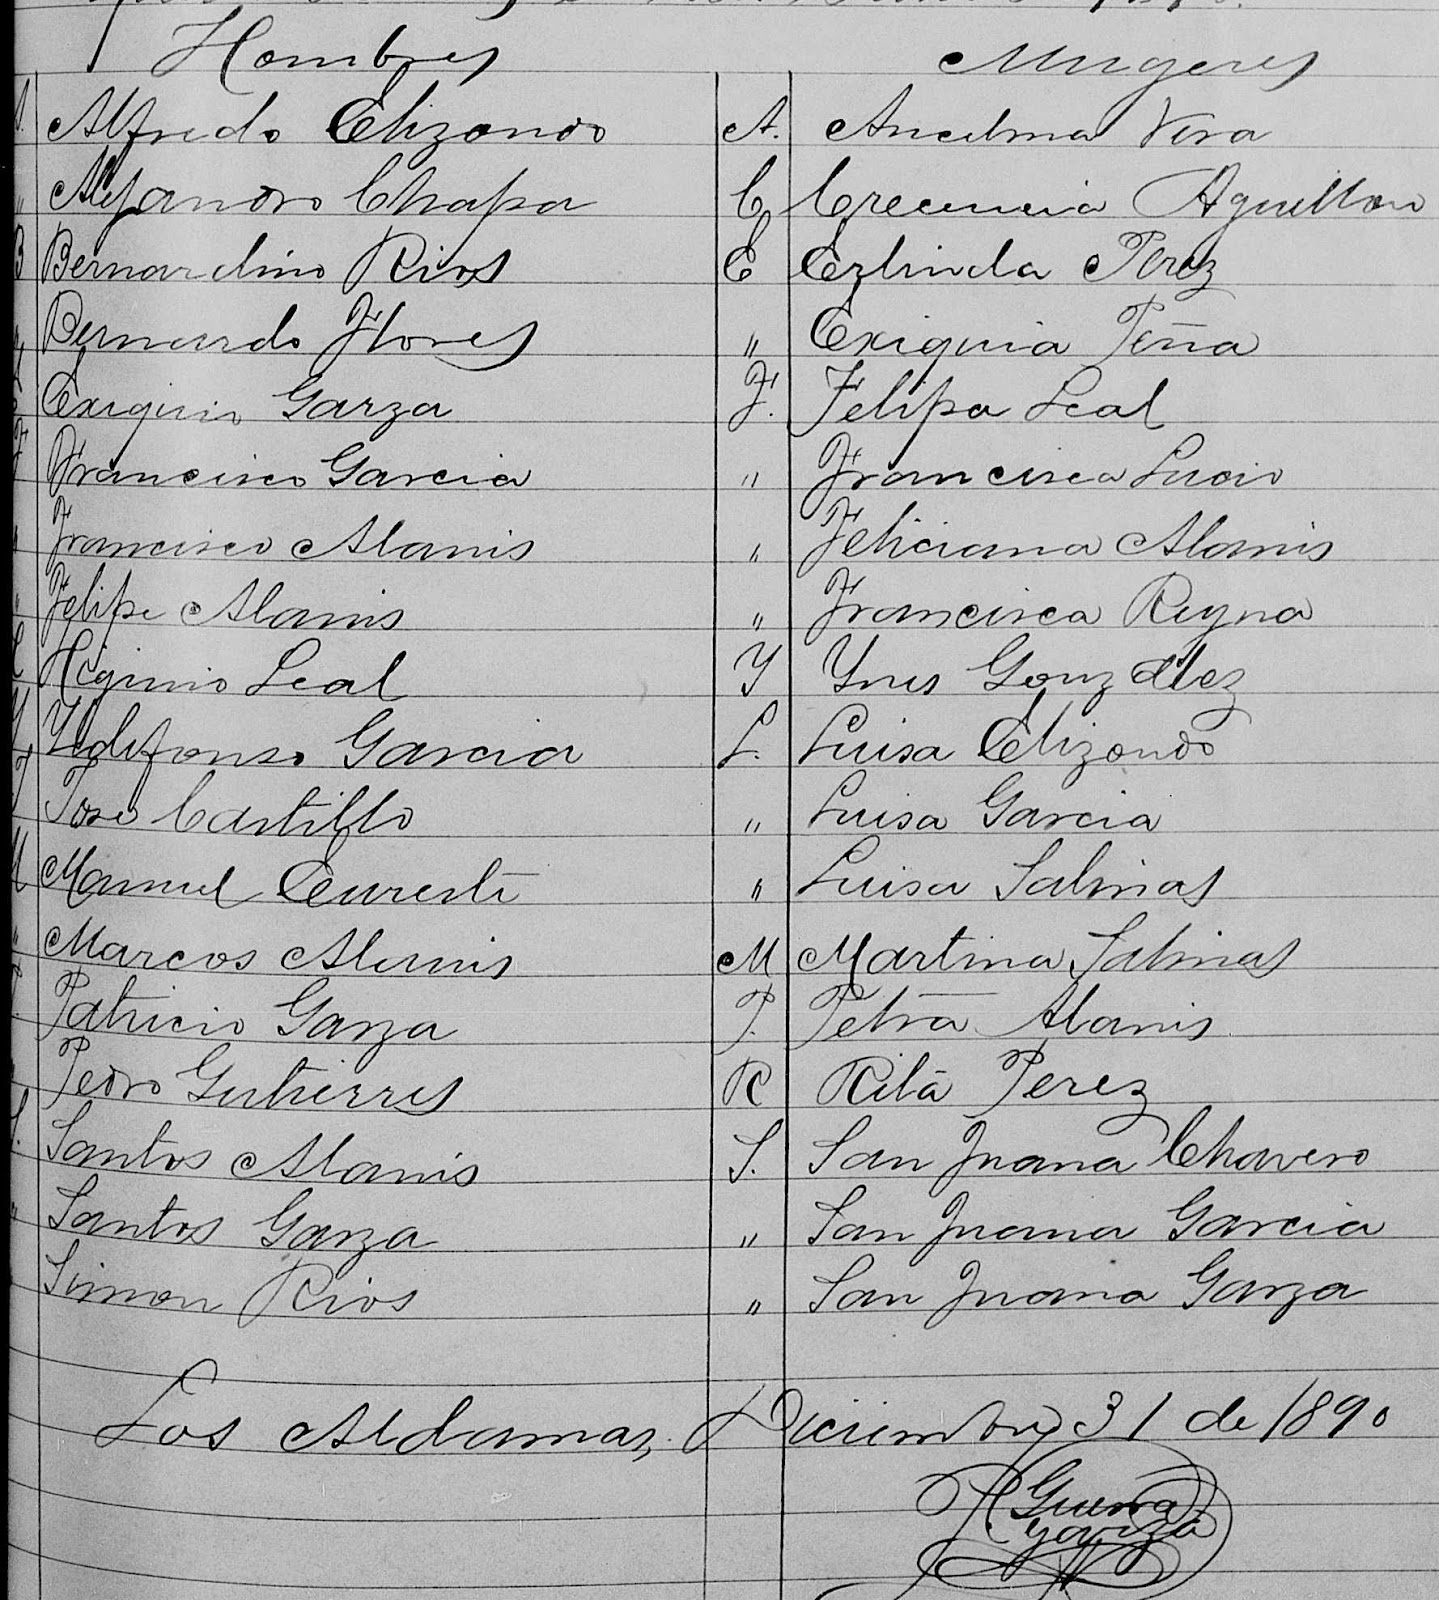 Hombres Mugeres
Alfredo Elizondo A. Ancelma Vera
" Alejandro Chapa C Crecencia Aguillon
B Bernardino Rios E Ezlinda Perez
Bernardo Flores " Exiquia Peña
Exiquio Garza F. Felipa Leal
F Francisco Garcia " Francisca Lucio
" Francisco Alanis " Feliciana Alanis
" Felipe Alanis " Francisca Reyna
Higinio Leal Y Ynes Gonzalez
Y Yldifonso Garcia L. Luisa Elizondo
J Jose Castillo " Luisa Garcia
M Manuel Euresti " Luisa Salinas
" Marcos Alanis M Martina Salinas
Patricio Garza P. Petra Alanis
Pedro Gutierres R Rita Perez
S. Santos Alanis S. San Juana Chavero
" Santos Garza " San Juana Garcia
Simon Rios " San Juana Garza
Los Aldamas, Diciembre 31 de 1890
R. Guerra
y garza